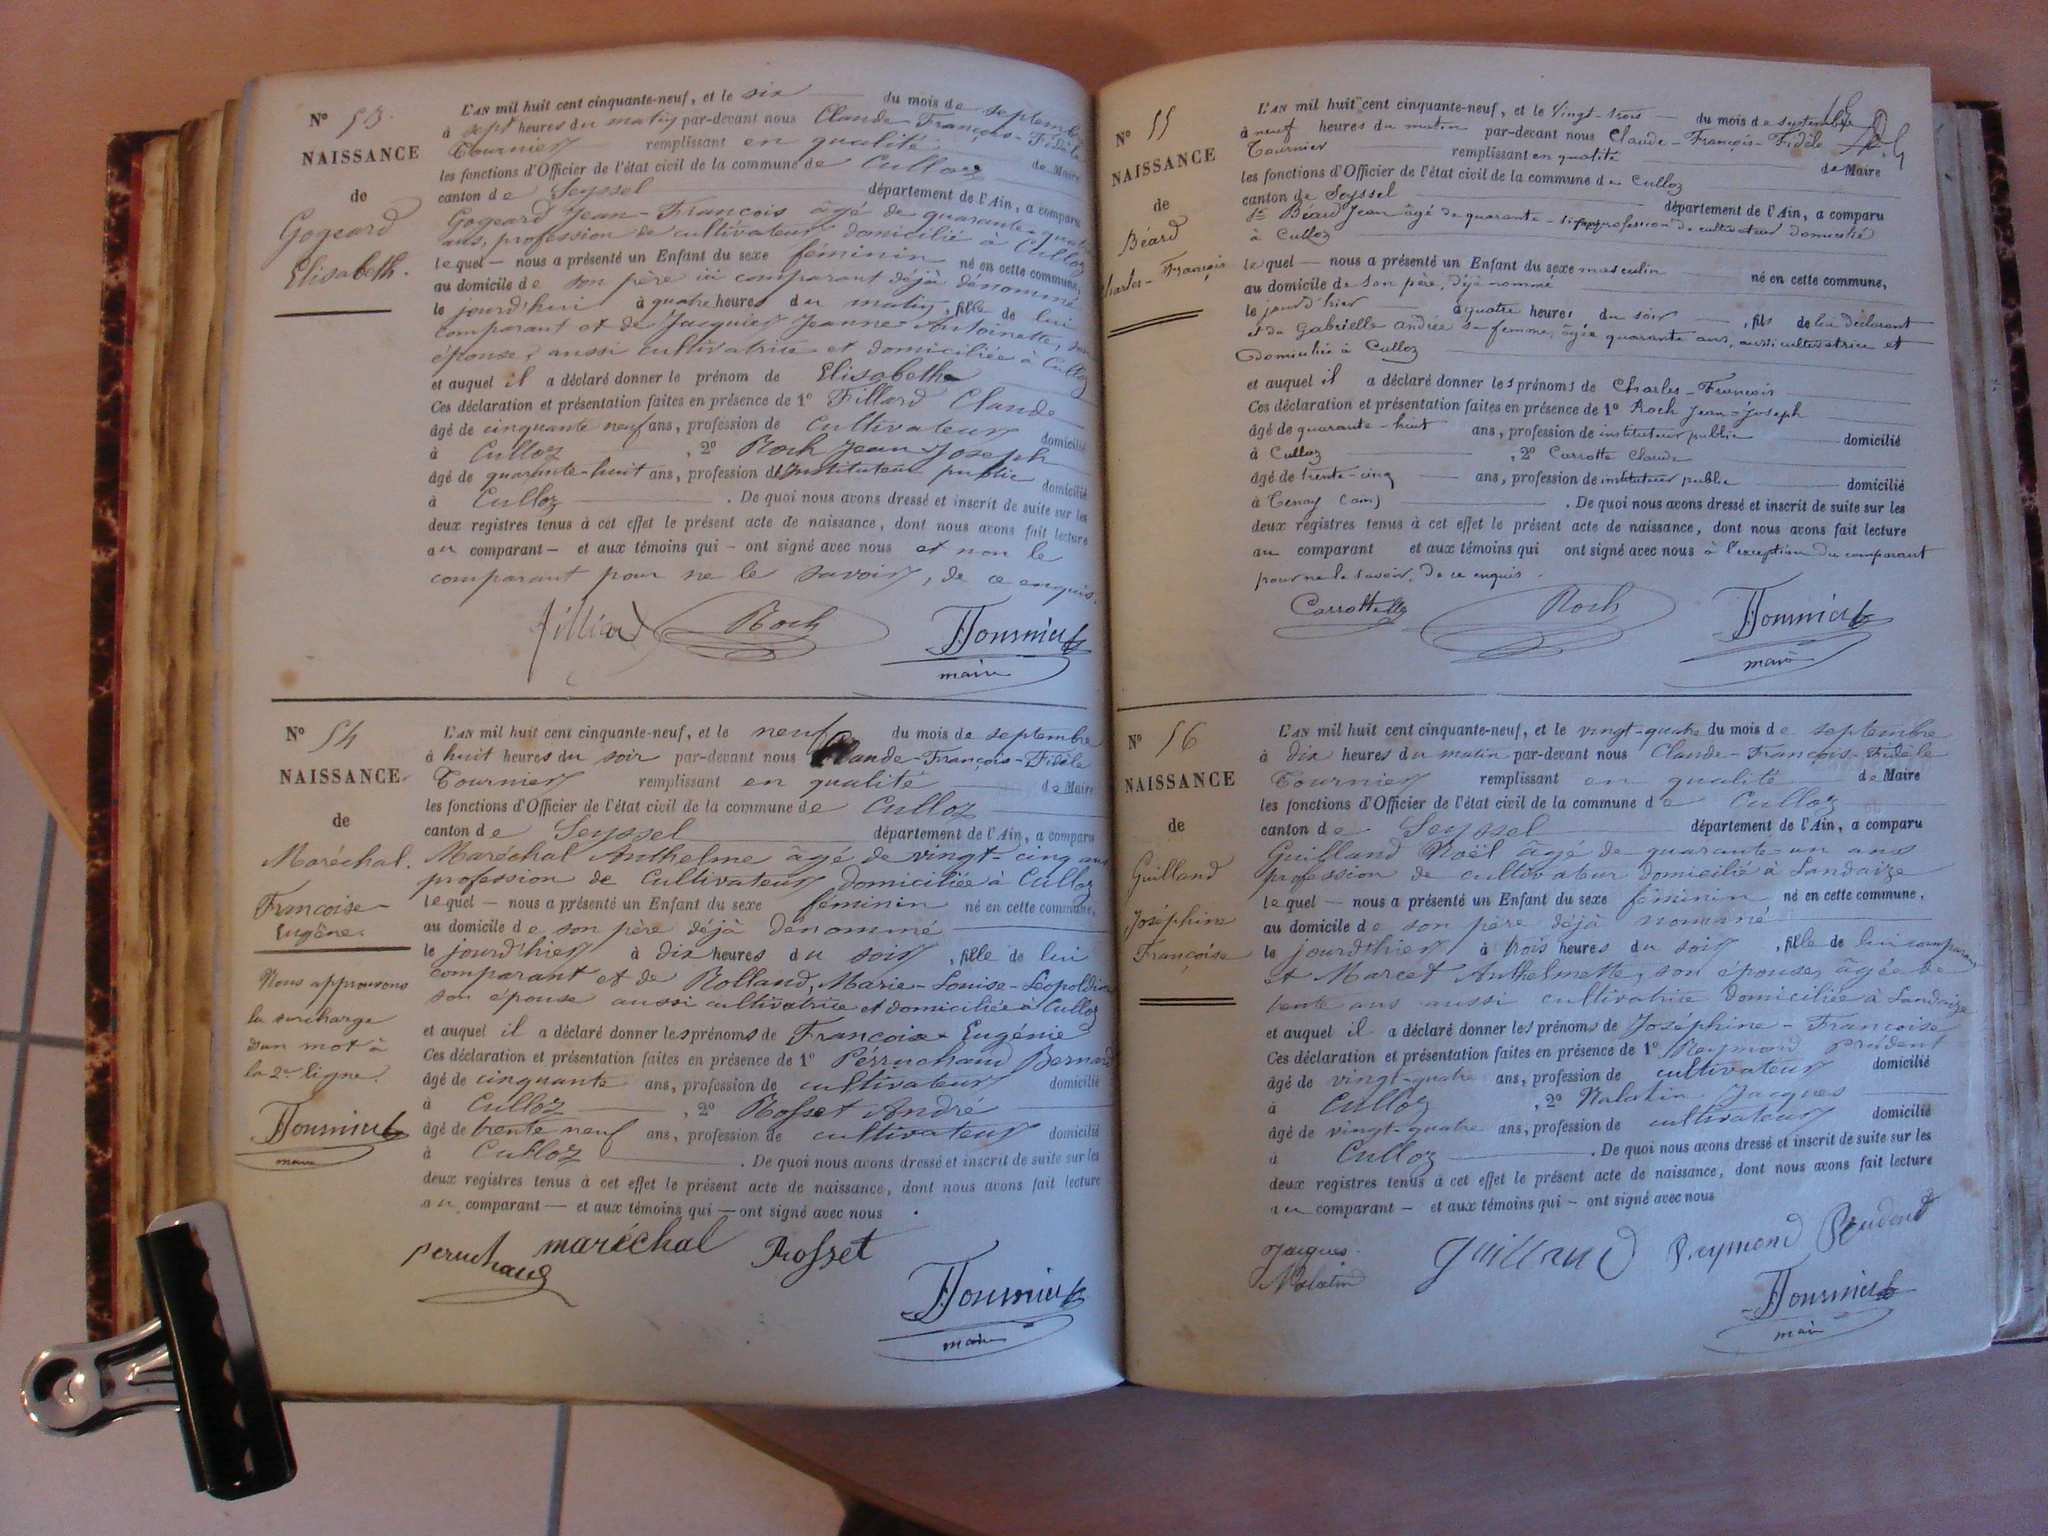 N° 53.
NAISSANCE
de
Gogeard
Elisabeth.
L'AN mil huit cent cinquante-neuf, et le six du mois de septembre
à sept heures du matin par-devant nous Claude-François-Fidèle
Tournier remplissant en qualité de Maire
les fonctions d'Officier de l'état civil de la commune de Culloz
canton de Seyssel département de l'Ain, a comparu
Gogeard Jean-François âgé de quarante-quatre
ans, profession de cultivateur domicilié à Culloz
lequel — nous a présenté un Enfant du sexe féminin né en cette commune,
au domicile de son père ici comparant déjà dénommé
le jourd'hui à quatre heures du matin, fille de lui
comparant et de Jacquier Jeanne-Antoinette, son
épouse, aussi cultivatrice et domiciliée à Culloz
et auquel il a déclaré donner le prénom de Elisabeth
Ces déclaration et présentation faites en présence de 1° Fillard Claude
âgé de cinquante neuf ans, profession de cultivateur domicilié
à Culloz, 2° Roch Jean-Joseph
âgé de quarante-huit ans, profession d'Instituteur public domicilié
à Culloz. De quoi nous avons dressé et inscrit de suite sur les
deux registres tenus à cet effet le présent acte de naissance, dont nous avons fait lecture
au comparant — et aux témoins qui — ont signé avec nous et non le
comparant pour ne le savoir, de ce enquis.
Roch
FTournier
maire
N° 54
NAISSANCE
de
Maréchal.
Françoise-
Eugène.
Nous approuvons
la surcharge
d'un mot à
la 2e ligne.
FTournier
maire
L'AN mil huit cent cinquante-neuf, et le neuf du mois de septembre
à huit heures du soir par-devant nous Claude-François-Fidèle
Tournier remplissant en qualité de Maire
les fonctions d'Officier de l'état civil de la commune de Culloz
canton de Seyssel département de l'Ain, a comparu
Maréchal Anthelme âgé de vingt-cinq ans
profession de cultivateur domiciliée à Culloz
lequel — nous a présenté un Enfant du sexe féminin né en cette commune,
au domicile de son père déjà dénommé
le jourd'hier à dix heures du soir, fille de lui
comparant et de Rolland, Marie-Louise-Léopoldine
son épouse aussi cultivatrice et domiciliée à Culloz
et auquel il a déclaré donner les prénoms de Françoise Eugénie
Ces déclaration et présentation faites en présence de 1° Pérruchaud Bernard
âgé de cinquante ans, profession de cultivateur domicilié
à Culloz, 2° Rosset André
âgé de trente neuf ans, profession de cultivateur domicilié
à Culloz. De quoi nous avons dressé et inscrit de suite sur les
deux registres tenus à cet effet le présent acte de naissance, dont nous avons fait lecture
au comparant — et aux témoins qui — ont signé avec nous.
peruchaud maréchal Rosset
FTournier
maire
N° 55
NAISSANCE
de
Béard
Charles-François
L'AN mil huit cent cinquante-neuf, et le vingt-trois du mois de septembre
à neuf heures du matin par-devant nous Claude-François-Fidèle
Tournier remplissant en qualité de Maire
les fonctions d'Officier de l'état civil de la commune de Culloz
canton de Seyssel département de l'Ain, a comparu
Béard Jean âgé de quarante-six ans profession de cultivateur domicilié
à Culloz
lequel — nous a présenté un Enfant du sexe masculin né en cette commune,
au domicile de son père, déjà nommé
le jourd'hier à quatre heures du soir, fils de lui déclarant
et de Gabrielle Andrée sa femme, âgée quarante ans, aussi cultivatrice et
domiciliée à Culloz
et auquel il a déclaré donner les prénoms de Charles-François
Ces déclaration et présentation faites en présence de 1° Roch Jean-Joseph
âgé de quarante-huit ans, profession de instituteur public domicilié
à Culloz, 2° Carrotte Claude
âgé de trente-cinq ans, profession de instituteur public domicilié
à Tenay (ain). De quoi nous avons dressé et inscrit de suite sur les
deux registres tenus à cet effet le présent acte de naissance, dont nous avons fait lecture
au comparant et aux témoins qui ont signé avec nous à l'exception du comparant
pour ne le savoir, de ce enquis.
Roch
FTournier
maire
N° 56
NAISSANCE
de
Guilland
Joséphine
Françoise
L'AN mil huit cent cinquante-neuf, et le vingt-quatre du mois de septembre
à dix heures du matin par-devant nous Claude-François-Fidèle
Tournier remplissant en qualité de Maire
les fonctions d'Officier de l'état civil de la commune de Culloz
canton de Seyssel département de l'Ain, a comparu
Guilland Noël âgé de quarante-un ans
profession de cultivateur domicilié à Landaize
lequel — nous a présenté un Enfant du sexe féminin né en cette commune,
au domicile de son père déjà nommé
le jourd'hier à trois heures du soir, fille de lui comparant
et Marcet Anthelmette, son épouse, âgée de
trente ans aussi cultivatrice domiciliée à Landaize
et auquel il a déclaré donner les prénoms de Joséphine-Françoise
Ces déclaration et présentation faites en présence de 1° Reymond prudent
âgé de vingt-quatre ans, profession de cultivateur domicilié
à Culloz, 2° Malatin Jacques
âgé de vingt-quatre ans, profession de cultivateur domicilié
à Culloz. De quoi nous avons dressé et inscrit de suite sur les
deux registres tenus à cet effet le présent acte de naissance, dont nous avons fait lecture
au comparant — et aux témoins qui — ont signé avec nous
Jacques Malatin Guilland Reymond Prudent
FTournier
maire